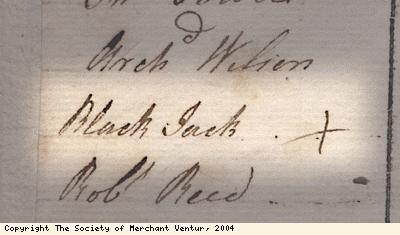 Arch^d Wilson
Black Jack . +
Rob^t Reed
Copyright The Society of Merchant Ventur, 2004